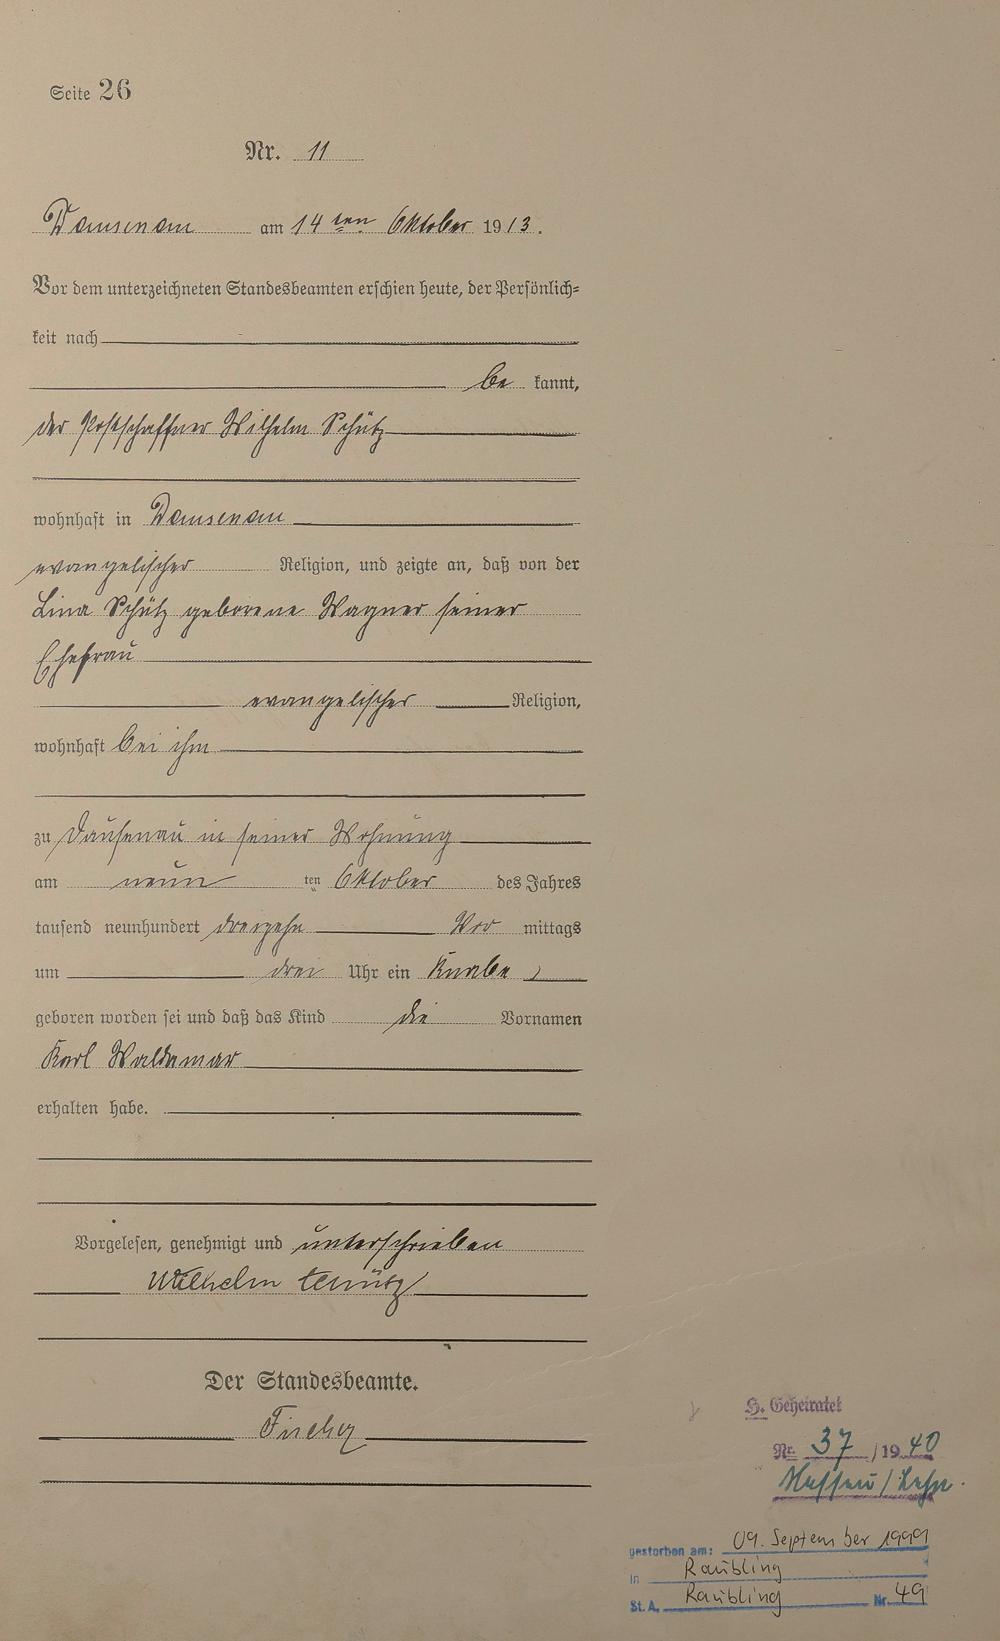 Seite 26
Nr. 11
Dausenau am 14 ten Oktober 1913.
Vor dem unterzeichneten Standesbeamten erschien heute, der Persönlich=
keit nach
be kannt,
der Postschaffner Wilhelm Schütz
wohnhaft in Dausenau
evangelischer Religion, und zeigte an, daß von der
Lina Schütz geborene Wagner seiner
Ehefrau
evangelischer Religion,
wohnhaft bei ihm
zu Dausenau in seiner Wohnung
am neun ten Oktober des Jahres
tausend neunhundert dreizehn Vor mittags
um drei Uhr ein Knabe
geboren worden sei und daß das Kind die Vornamen
Karl Waldemar
erhalten habe.
Vorgelesen, genehmigt und unterschrieben
Wilhelm Schütz
Der Standesbeamte.
H. Geheiratet
Nr. 37 /1940
Nassau/Lahn.
gestorben am: 09. September 1999
in Raubling
St. A. Raubling Nr. 49